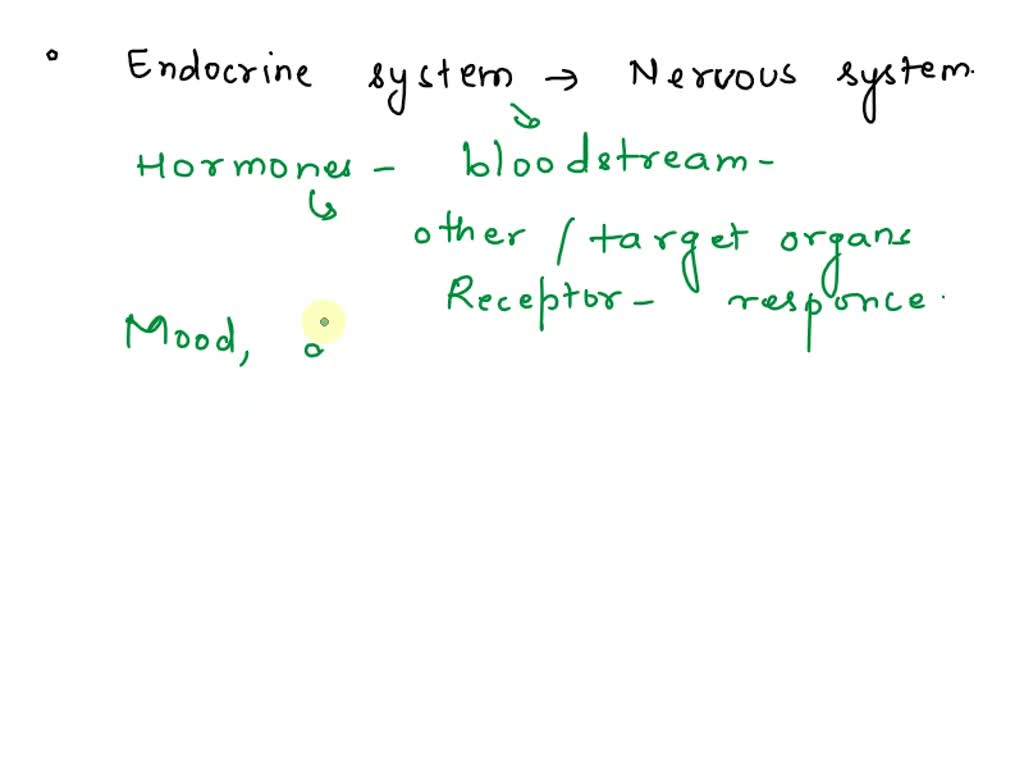 Endocrine system → Nervous system.
Hormones - bloodstream -
other / target organs
Receptor - responce.
Mood, a